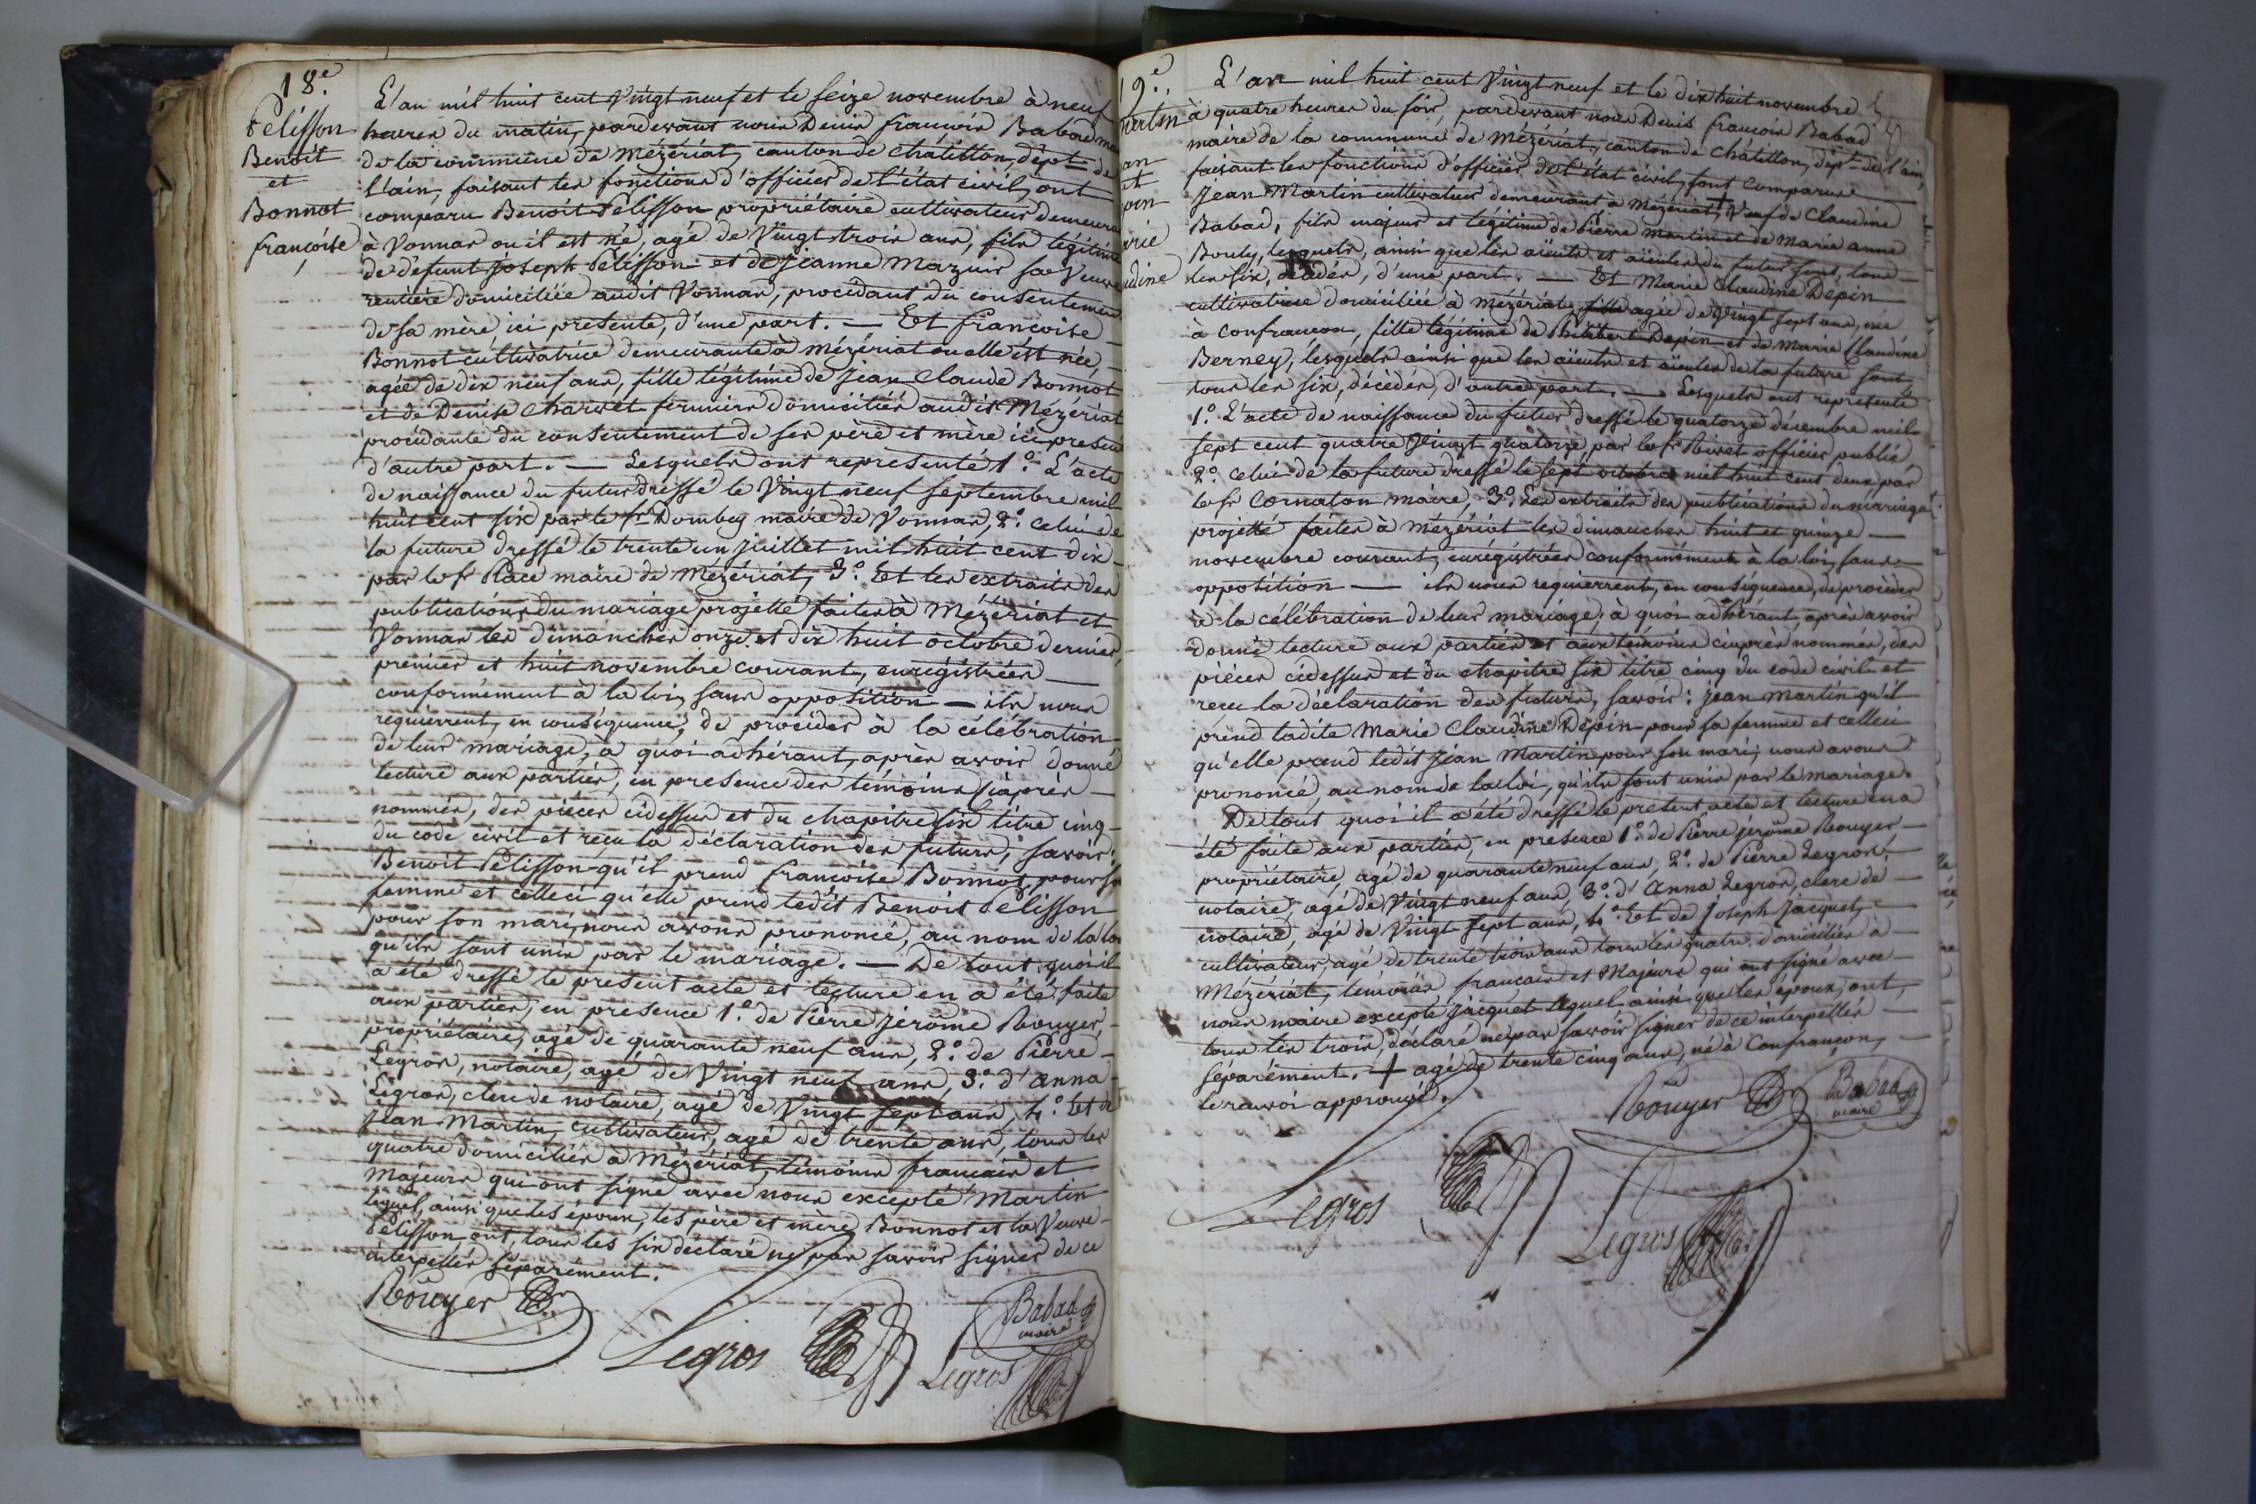 18.e
Pelisson
Benoit
et
Bonnot
françoise
L'an mil huit cent vingt neuf et le seize novembre à neuf
heures du matin, pardevant nous Denis françois Babad
de la commune de Mézériat, canton de chatillon, dépt. de
l'ain, faisant les fonctions d'officier de l'état civil, ont
comparu Benoit Pelisson propriétaire cultivateur
à Vonnas ou il est né, agé de vingt trois ans, fils légitime
de défunt joseph Pelisson et de jeanne Mazuir sa veuve
rentière domiciliée audit Vonnas, procédant du
de sa mère ici présente, d'une part. — Et françoise
Bonnot cultivatrice demeurante à Mézériat ou elle est née,
agée de dix neuf ans, fille légitime de jean Claude Bonnot
et de Denise charvet fermiers domiciliés audit Mézériat
procédante du consentement de ses père et mère ici
d'autre part. — Lesquels ont representé 1.o L'acte
de naissance du futur dressé le vingt neuf septembre mil
huit cent six par le sr Dombey maire de Vonnas, 2.o celui de
la future dressé le trente un juillet mil huit cent dix
par le sr Place maire de Mézériat, 3.o Et les extraits des
publications du mariage projetté faites à Mézériat et
Vonnas les dimanches onze et dix huit octobre dernier,
premier et huit novembre courant, enrégistrées —
conformément à la loi, sans opposition — ils nous
requierrent, en conséquence, de procéder à la célébration
de leur mariage, à quoi adhérant, après avoir donné
lecture aux parties, en presence des témoins ciaprès
nommés, des pièces cidessus et du chapitre six titre cinq
du code civil et reçu la déclaration des futurs, savoir:
Benoit Pelisson qu'il prend françoise Bonnot pour sa
femme et celleci qu'elle prend ledit Benoit Pelisson
pour son mari, nous avons prononcé, au nom de la loi
qu'ils sont unis par le mariage. — De tout quoi il
a été dressé le present acte et lecture en a été faite
aux parties, en presence 1.o de Pierre jérôme Rouyer,
propriétaire, agé de quarante neuf ans, 2.o de Pierre
Legros, notaire, agé de vingt neuf ans, 3.o d'anna
Legros, clerc de notaire, agé de vingt sept ans, 4.o Et de
jean Martin, cultivateur, agé de trente ans, tous les
quatre domiciliés à Mézériat, témoins français et
majeurs qui ont signé avec nous excepté Martin
lequel, ainsi que les époux, les père et mère Bonnot et la veuve
Pelisson ont, tous les six déclaré ne pas savoir signer de ce
interpellés séparément.
Rouyer
Legros
Legros
Babad
maire
19.e
L'an mil huit cent vingt neuf et le dix huit novembre
à quatre heures du soir, pardevant nous Denis françois Babad
maire de la commune de Mézériat, canton de châtillon, dépt. de l'ain,
faisant les fonctions d'officier de l'état civil, sont comparus
Jean Martin cultivateur demeurant à Mézériat, + veuf de Claudine
Babad, fils majeur et légitime de Pierre Martin et de Marie anne
Bouly, lesquels, ainsi que les aïeuls et aïeules du futur sont, tous
les six, décédés, d'une part. — Et Marie Claudine Dépin
cultivatrice domiciliée à Mézériat, agée de vingt sept ans, née
à confrançon, fille légitime de Philibert Depin et de Marie Claudine
Berney, lesquels ainsi que les aïeuls et aïeules de la future sont,
tous les six, décédés, d'autre part. — Lesquels ont representé
1.o L'acte de naissance du futur dressé le quatorze décembre mil
sept cent quatre vingt quatorze, par le sr Rivet officier public,
2.o celui de la future dressé le sept octobre mil huit cent deux par
le sr Cornaton maire, 3.o Les extraits des publications du mariage
projetté faites à Mézériat les dimanches huit et quinze —
novembre courant, enrégistrées conformément à la loi, sans
opposition — ils nous requierrent, en conséquence, de procéder
à la célébration de leur mariage, à quoi adhérant, après avoir
donné lecture aux parties et aux témoins ciaprès nommés, des
pièces cidessus et du chapitre six titre cinq du code civil et
reçu la déclaration des futurs, savoir: jean Martin qu'il
prend ladite Marie Claudine Dépin pour sa femme et celleci
qu'elle prend ledit jean Martin pour son mari; nous avons
prononcé, au nom de la loi, qu'ils sont unis par le mariage.
De tout quoi il a été dressé le present acte et lecture en a
été faite aux parties, en presence 1.o de Pierre jérôme Rouyer
propriétaire, agé de quarante neuf ans, 2.o de Pierre Legros,
notaire, agé de vingt neuf ans, 3.o d'anna Legros, clerc de
notaire, agé de vingt sept ans, 4.o Et de joseph jacquet,
cultivateur, agé de trente trois ans tous les quatre domiciliés à
Mézériat, témoins français et majeurs qui ont signé avec
nous maire excepté jacquet lequel ainsi que les époux, ont,
tous les trois, déclaré ne pas savoir signer de ce interpellés
séparément. + agé de trente cinq ans, né à Confrançon,
le renvoi approuvé.
Rouyer
Babad
maire
Legros
Legros